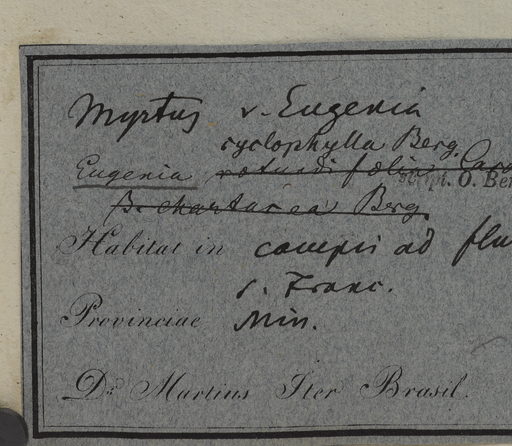 Myrtus v. Eugenia
cyclophylla Berg.
Eugenia rotundifolia Cas
script. O. Ber
β. chartacea Berg.
Habitat in campis ad flu
s. Franc.
Provinciae Min.
Dr. Martius Iter Brasil.